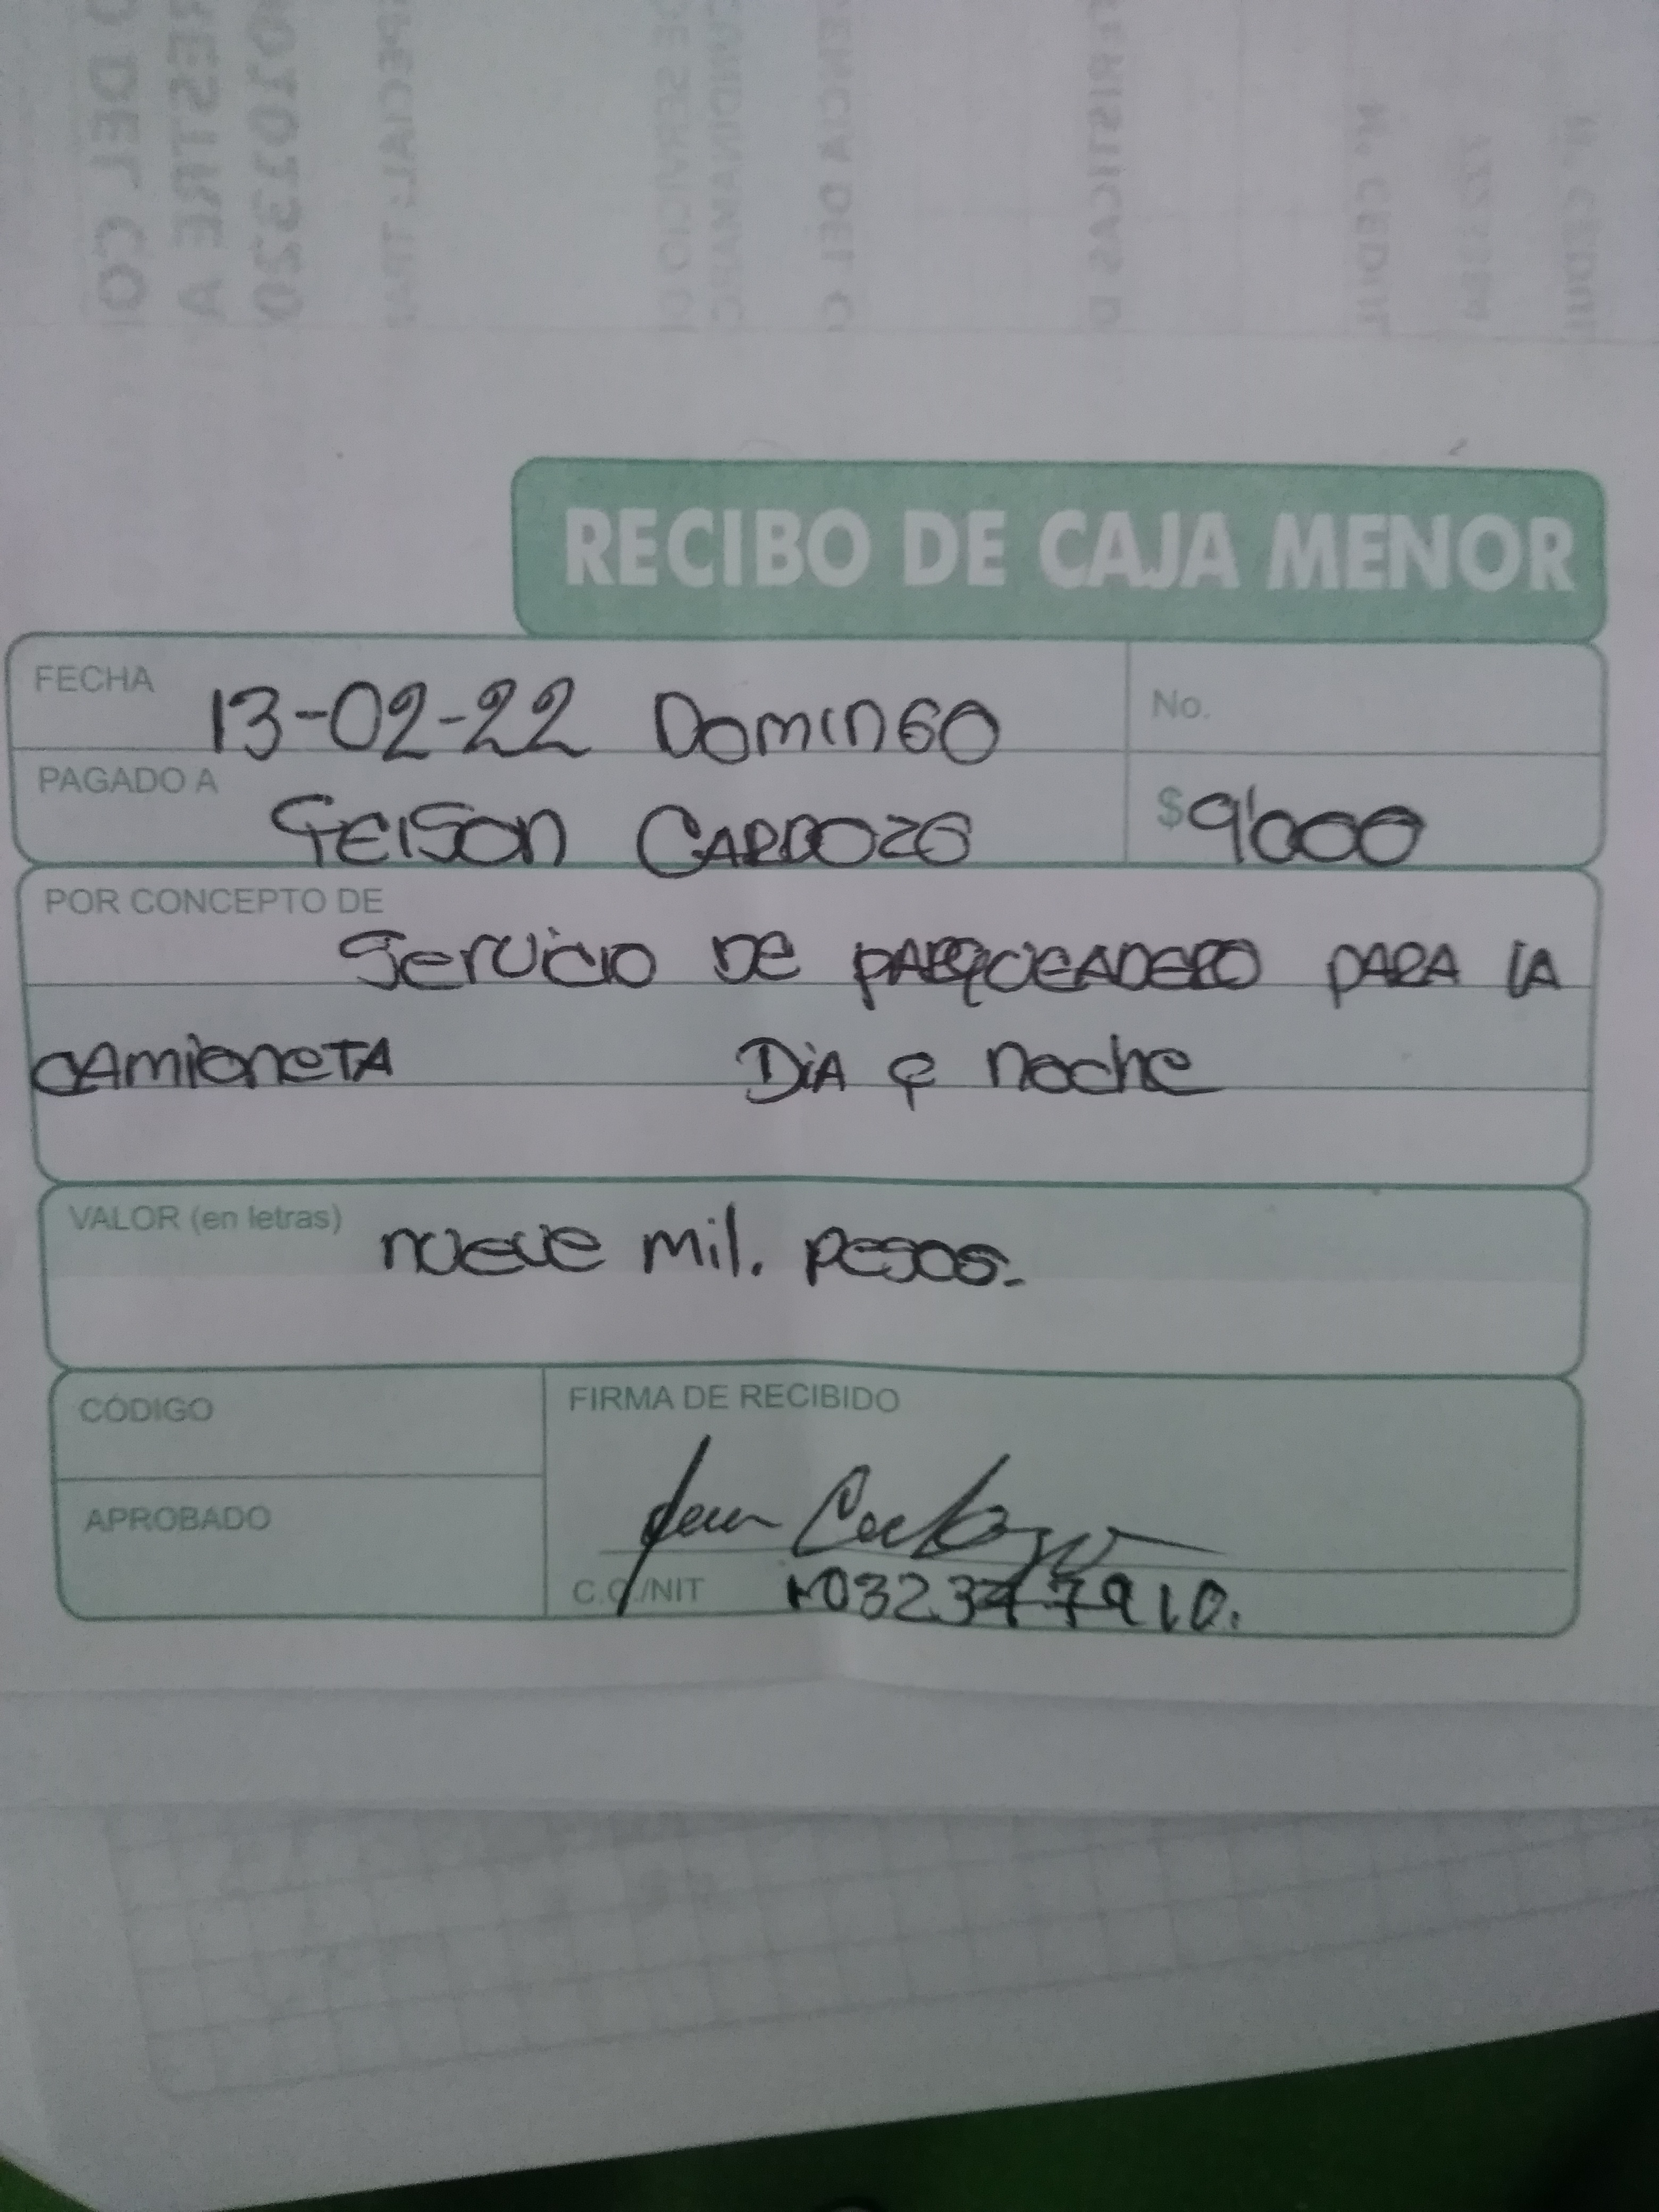 RECIBO DE CAJA MENOR
FECHA 13-02-22 DOMINGO No.
PAGADO A GEISON CARDOZO $ 9'000
POR CONCEPTO DE
Servicio DE PARQUEADERO PARA LA
CAmioneTA DiA y noche
VALOR (en letras) nueve mil. pesos.
CÓDIGO FIRMA DE RECIBIDO
APROBADO
C.C./NIT